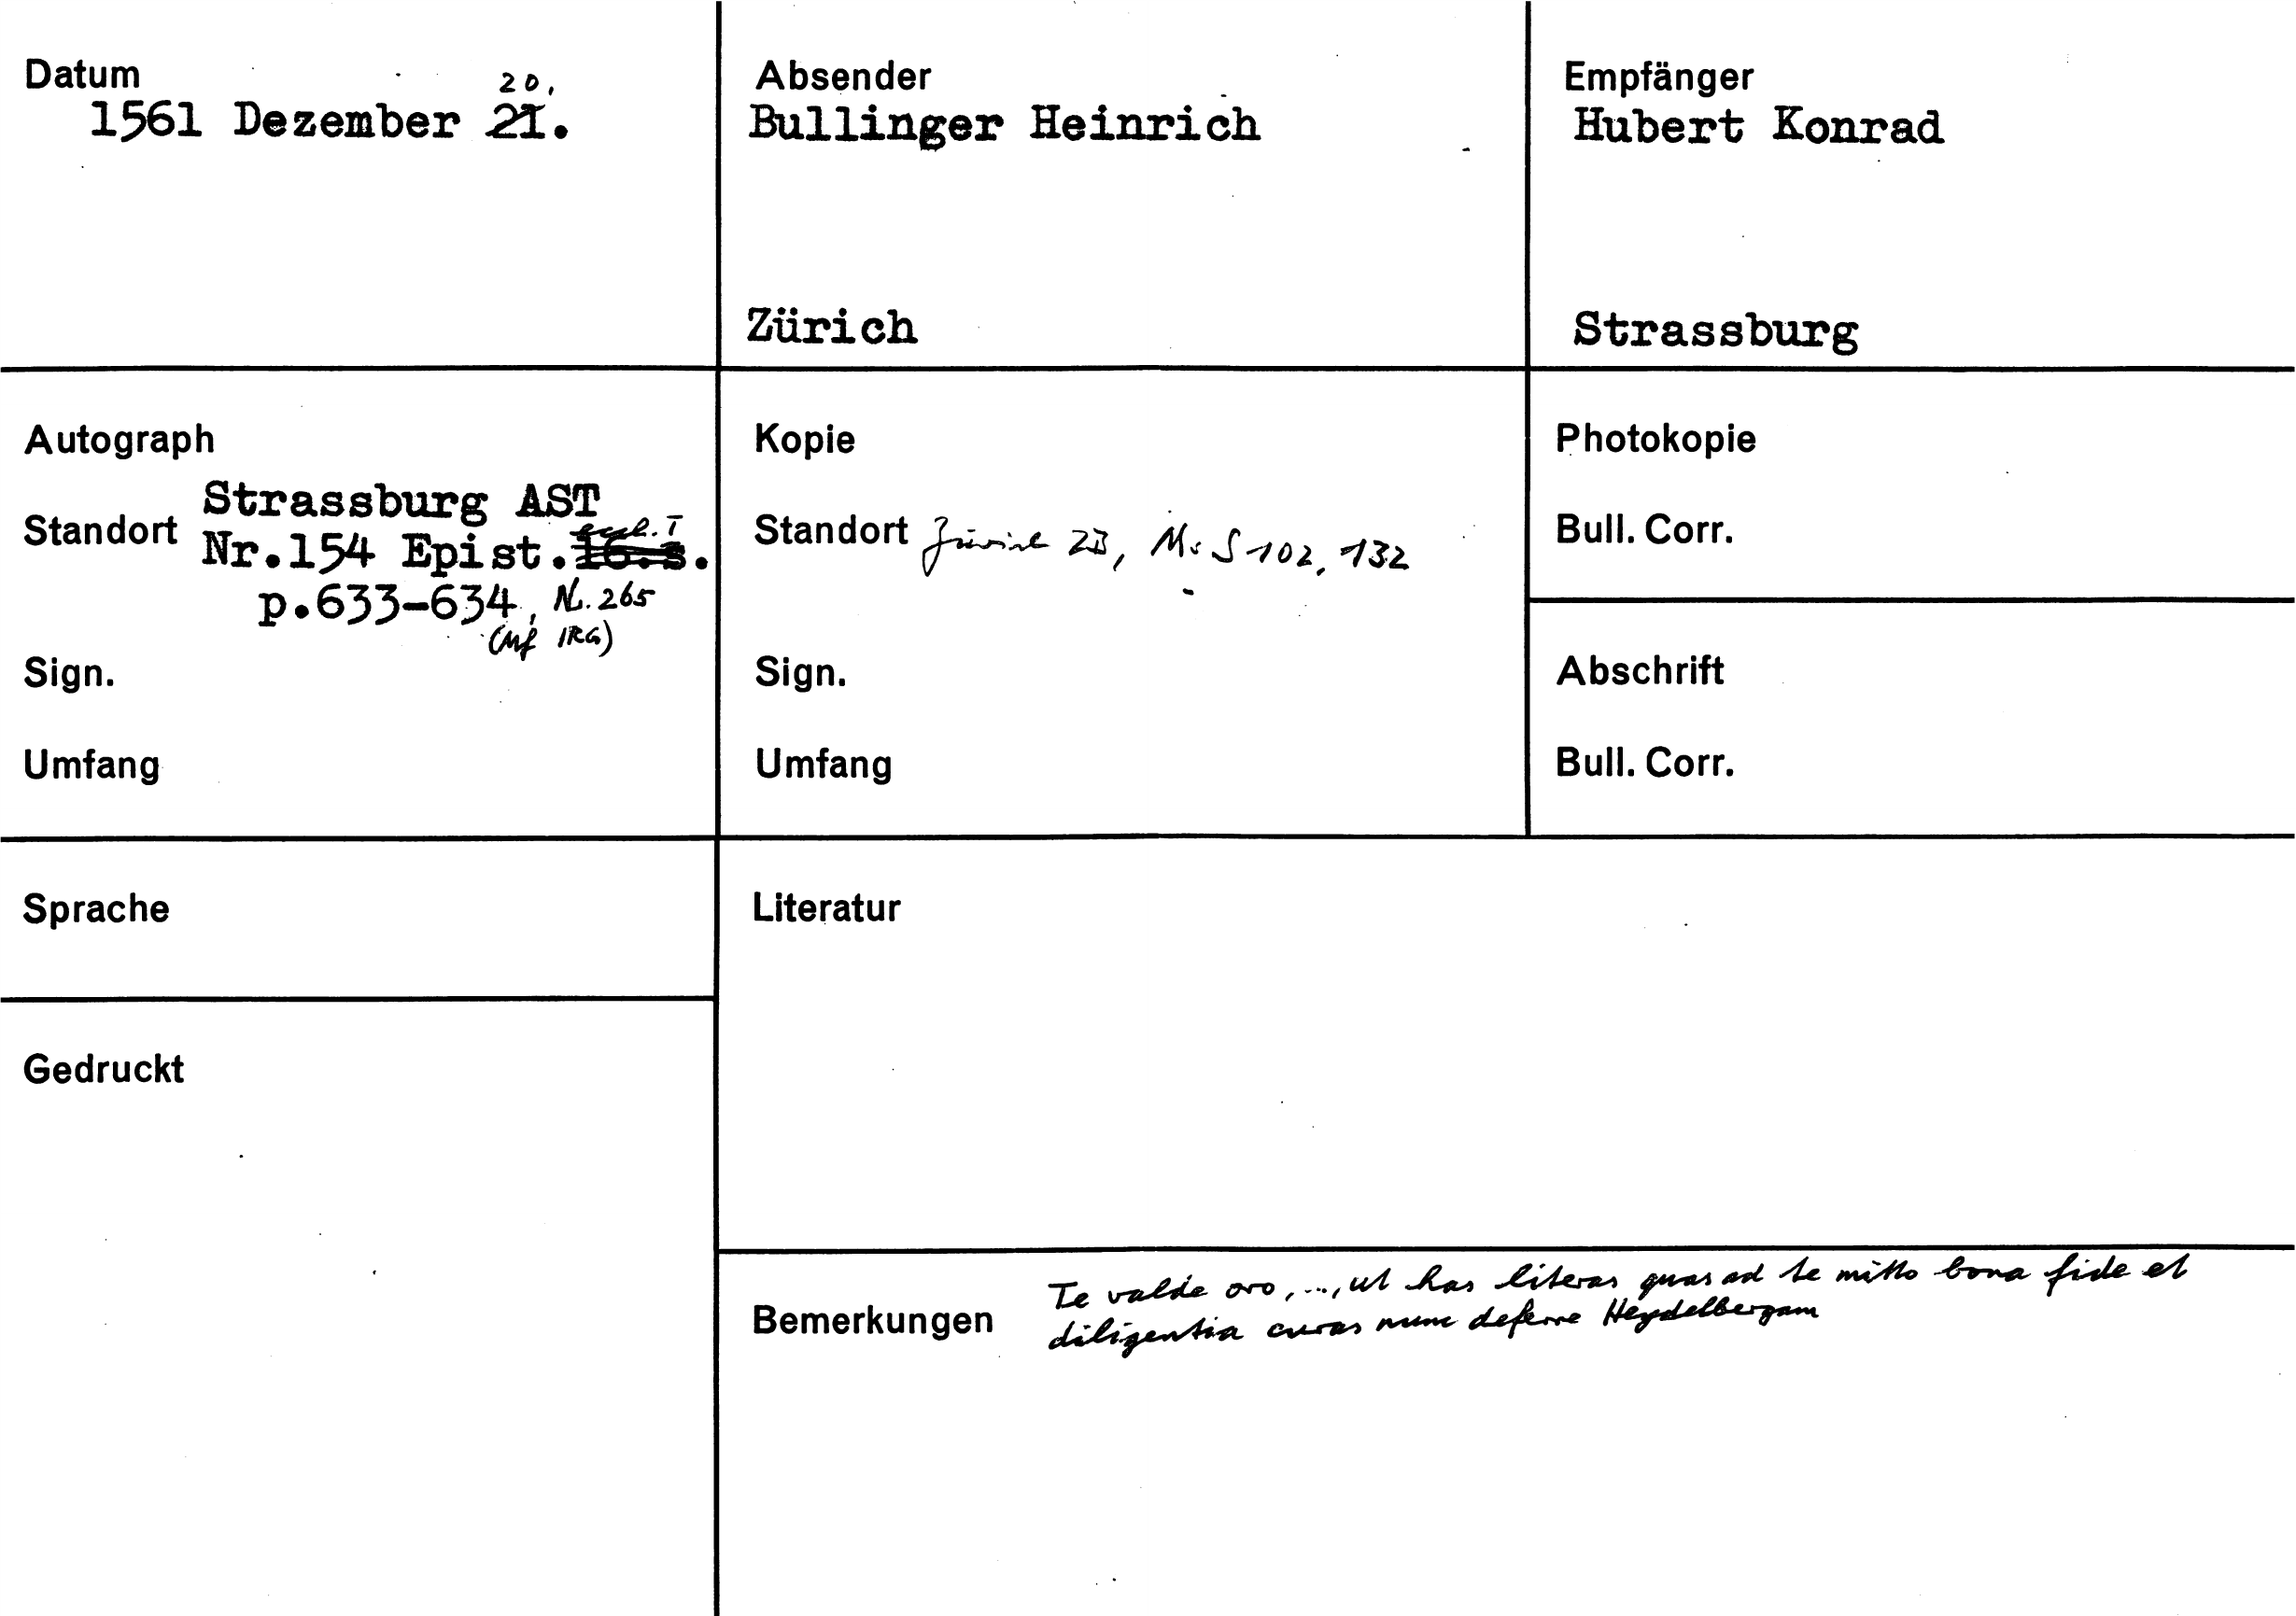 Datum
20.
1561 Dezember 21.
Absender
Bullinger Heinrich
Zürich
Empfänger
Hubert Konrad
Strassburg
Autograph
Standort Strassburg AST
eccl. I
Nr.154 Epist. 16. s.
p.633-634, Nr. 265
(Mf IRG)
Sign.
Umfang
Kopie
Standort Zürich ZB, Ms S 102, 132
Sign.
Umfang
Photokopie
Bull. Corr.
Abschrift
Bull. Corr.
Sprache
Literatur
Gedruckt
Bemerkungen
Te valde oro, ..., ut has literas quas ad te mitto bona fide et
diligentia curas nunc deferre Heydelbergam